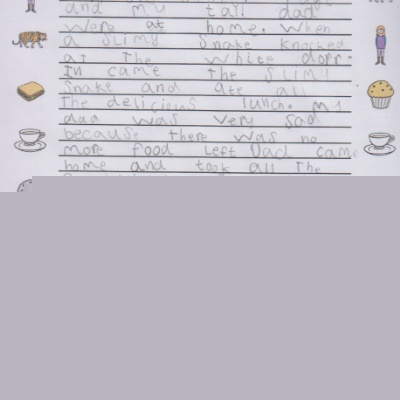 and my tall dad
were at home. When
a slimy snake knocked
at the white dorr.
In came the slimy
snake and ate all
the delicious lunch. My
dad was very sad
because there was no
more food left Dad came
home and took all the